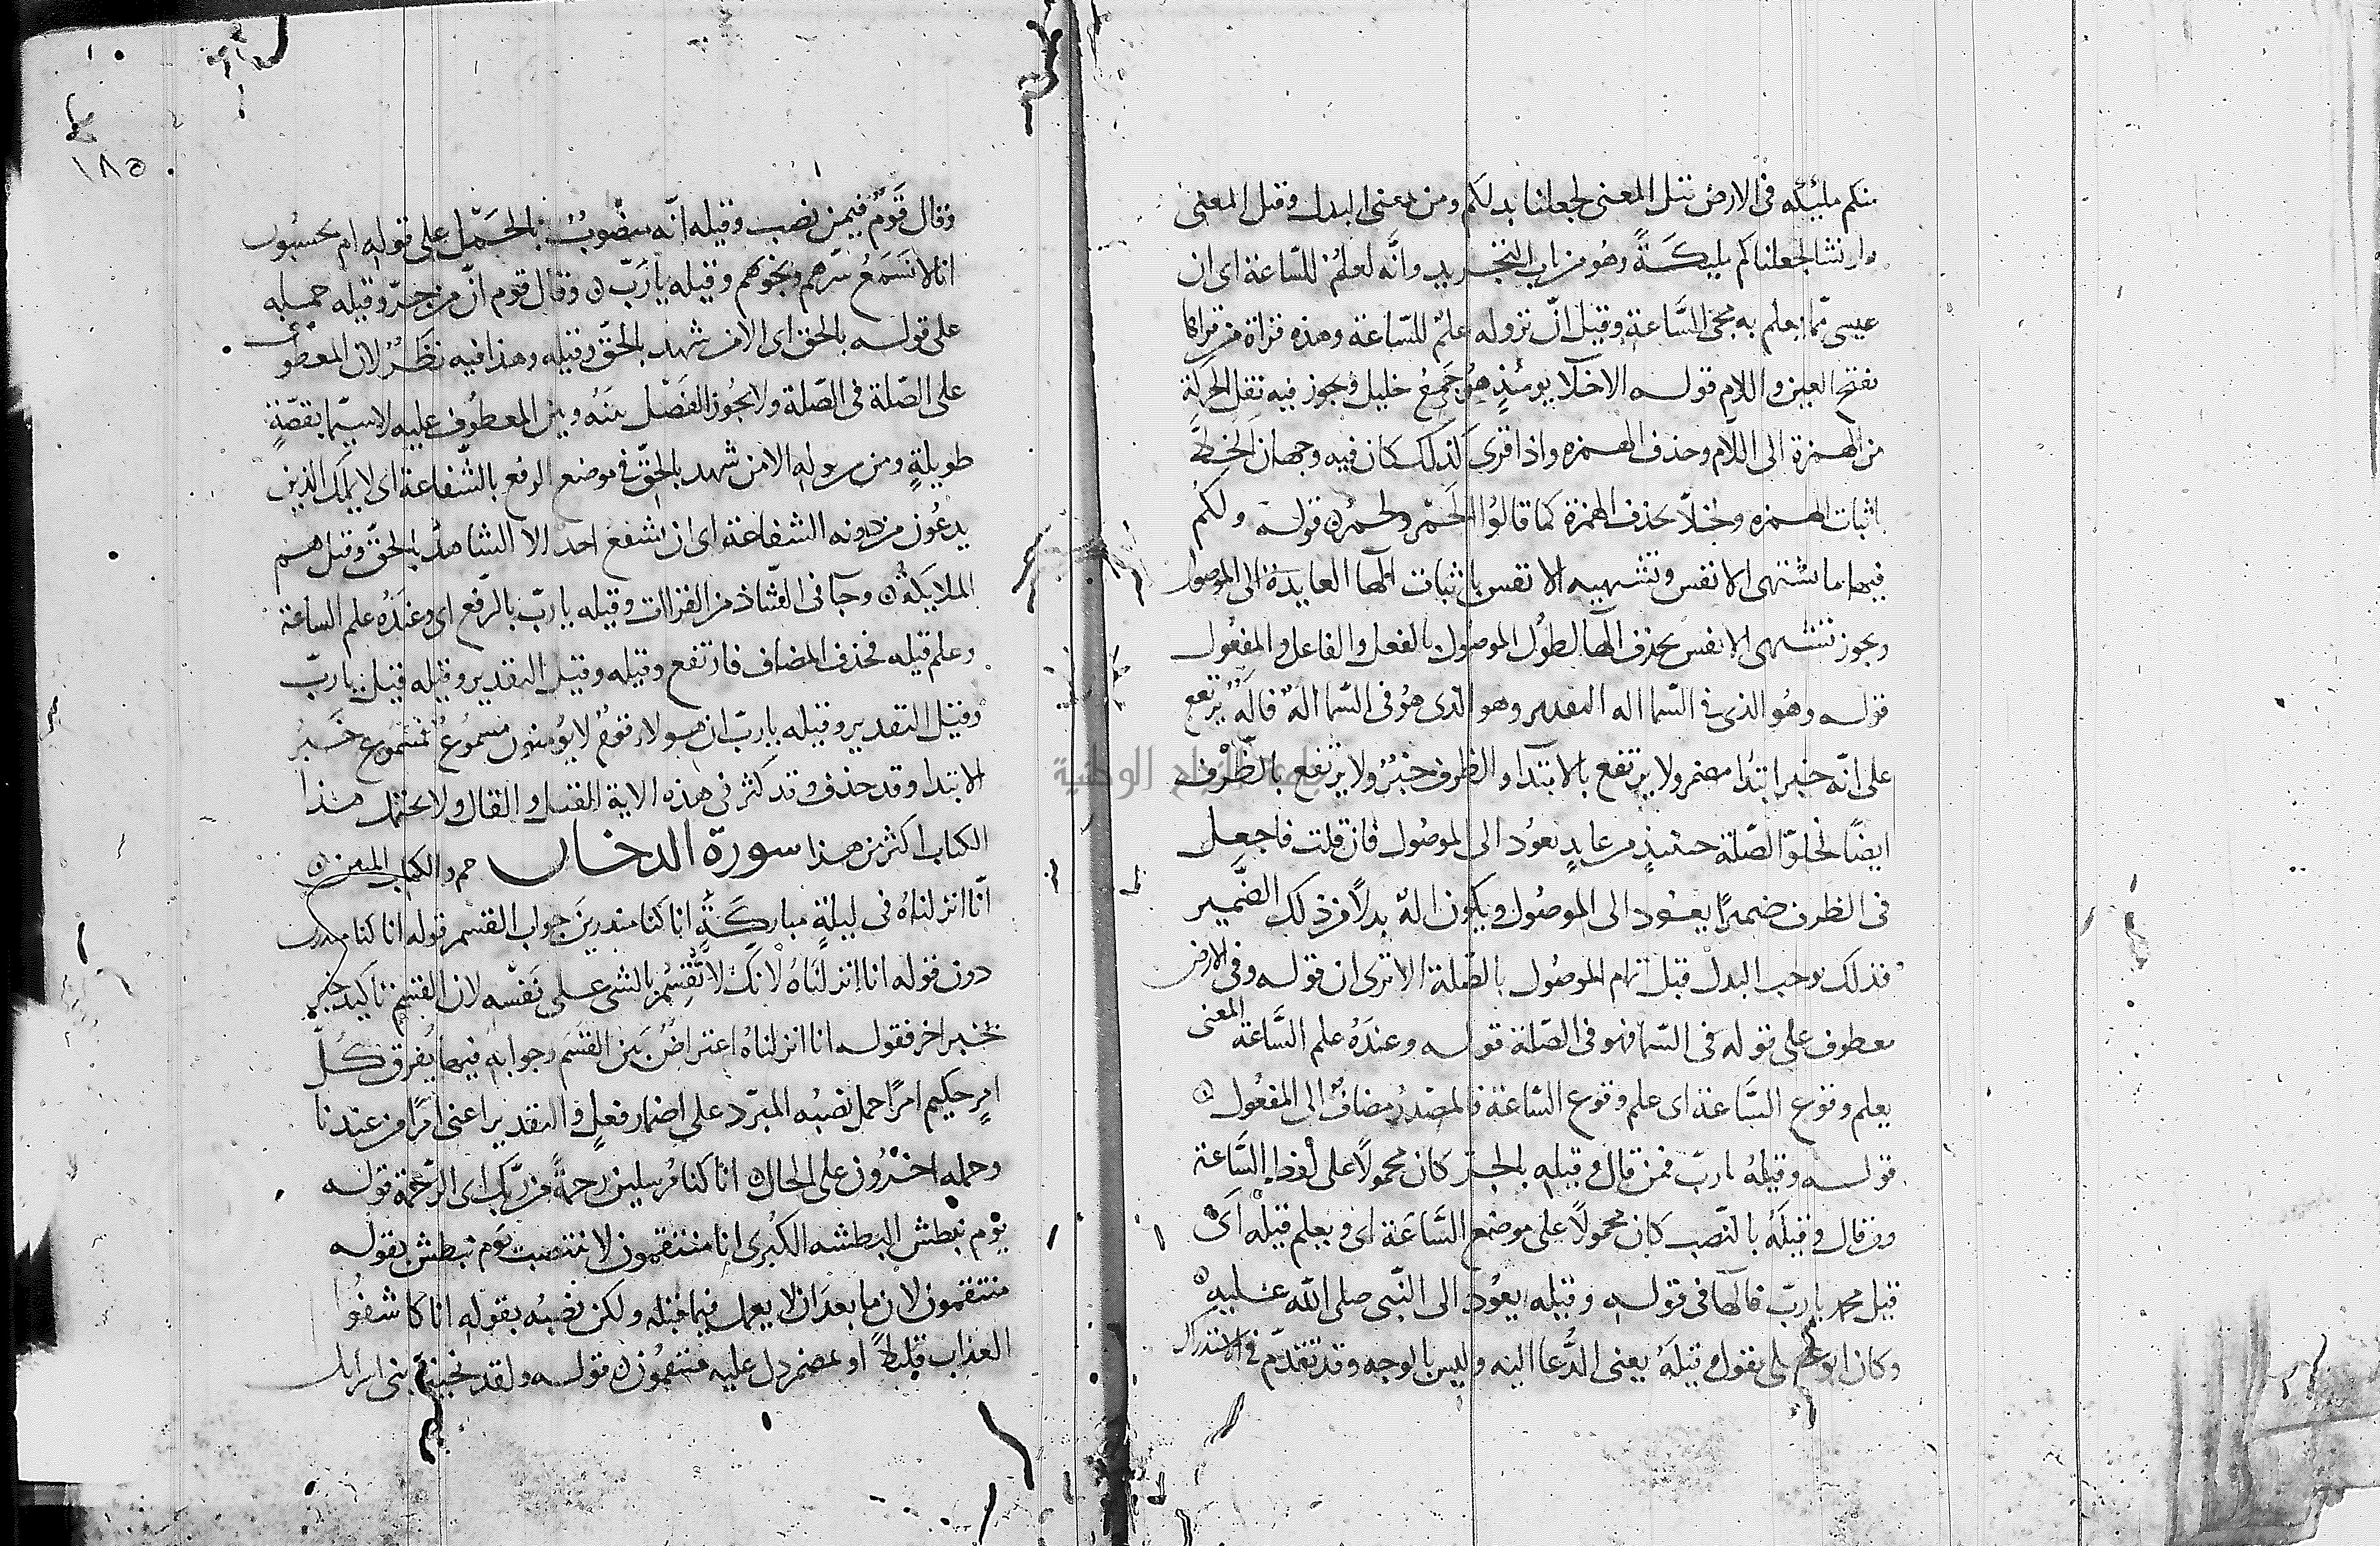 منكم مليكة في الارض قيل المعنى لجعلنا بدلكم ومن بمعنى البدل وقيل المعنى
ولو نشا لجعلناكم مليكةً وهو من باب التجريد وانَّه لعلمٌ للسّاعة اى ان
عيسى ممّا يعلم به مجى السَّاعةِ وقيل انّ نزوله علمٌ للسّاعة وهذه قراة من قراها
بفتح العين واللام قوله الاخلّا يومئذٍ هو جَمعُ خليل ويجوز فيه نقل الحركة
من الهمزة الى اللّام وحذف الهمزه واذا قرى كذلك كان فيه وجهان
اثبات الهمزه ولخلّا بحذف الهمزة كما قالوا الَحمر ولحمر قوله ولكم
فيها ما تشتهى الانفس وتشتهيه الانفس باثبات الها العايدة الى الموصول
ويجوز تشتهى الانفس بحذف الها لطول الموصول بالفعل والفاعل والمفعول
قوله وهو الذى في السّما اله التقدير وهو الذى هو في السّما الهٌ فالهٌ يرتفع
على انّه خبر ابتدا مضمر ولا يرتفع بالابتدا والظرف خبرٌ ولا يرتفع بالظّرف
ايضًا لخلوّ الصّلة حينئذٍ من عايدٍ يعُود الى الموصُول فان قلت فاجعل
في الظرف ضميرًا يعود الى الموصُول ويكون الهٌ بدلًا من ذلك الضَّمير
فذلك يوجب البدل قبل تمام الموصُول بالصّلة الا ترى ان قوله وفى الارض
معطوف على قوله في السّما فهو في الصّلة قوله وعندَهُ علم السَّاعة المعنى
يعلم وقوع السَّاعة اى علم وقوع السّاعة فالمصدرُ مضافٌ الى المفعُول
قوله وقيلهُ يارب فمن قال وقيلهِ بالجر كان محمولًا على لفظ السَّاعة
ومن قال وقيلَهُ بالنّصب كان محمولًا على موضع السَّاعَة اى ويعلم قيلَه اى
قيل محمد يا ربّ فالها في قوله وقيله يعُود الى النّبى صلى الله عليه
وكان ابو على يقول وقيلَهُ يعنى الدُّعا اليه وليس بالوجه وقد تقدّم في الاستدراك
١٨٥
وقال قَومٌ فيمن نصب وقيله انّه منصُوبٌ بالحَمْل على قوله ام يحسبُون
انا لا نَسمَعُ سّرهم ونجواهم وقيله يا رَبّ وقال قوم انّ من جرّ وقيله حمله
على قوله بالحق اى الا من شهد بالحقّ وقيله وهذا فيه نظَرٌ لان المعطوف
على الصّلة في الصّلة ولا يجُوز الفَصْل بينَهُ وبين المعطُوف عليه لا سيّما بقصّةٍ
طويلةٍ ومن قوله الا من شهد بالحقّ في موضع الرفع بالشّفاعة اى لا يملك الذين
يدعُون من دونه الشفاعة اى ان يشفع احد الا الشاهدُ بالحقّ وقيل هم
الملايكةُ وجا في الشّاذ من القراات وقيله يا ربّ بالرّفع اى وعندُه علم الساعة
وعلم قيله فحذف المضاف فارتفع وقيله وقيل التقدير وقيله قيل يا ربّ
وقيل التقدير وقيله يا ربّ ان هولا قومٌ لا يومنون مسمُوعٌ فمسموع خَبرُ
الابتدا وقد حذف وقد كثر في هذه الاية القيل والقال ولا يحتمل هذا
الكتاب اكثر من هذا سورة الدخان حم والكتاب المبين
انّا انزلناهُ في ليلةٍ مباركَةٍ انا كنا منذرينَ جواب القسم قوله انا كنا منذرين
دون قوله انا انزلنَاهُ لانك لا تُقسِمُ بالشى على نَفسه لان القسم تاكيد خبرٍ
بخبر اخر فقوله انا انزلناهُ اعتراضٌ بَين القَسَم وجوابه فيها يُفرق كُلّ
امرٍ حكيم امرًا حمل نصبُه المبرّد على اضمار فعلٍ والتقدير اعنى امرًا من عندنا
وحمله اخرُون على الحال انا كنا مُرسلين رحمةً من ربّك اى الرَّحمة قوله
يوْم نبطش البطشه الكبرى انا منتقمون لا ينتصب يوم نبطش بقوله
منتقمون لان ما بعدَ ان لا يعمل فيما قبله ولكن نصبُه بقوله انا كاشفُوا
العذاب قليلًا او بمضمر دل عليه منتقمُون قوله ولقد نجينا بنى اسرايل